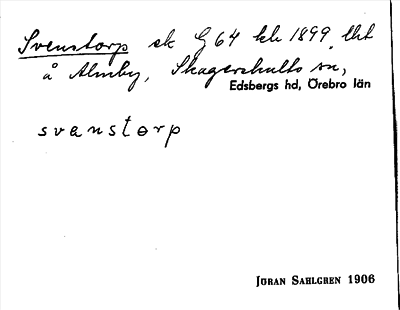 Svenstorp ek G 64 kbl 1899, lht
å Almby, Skagershults sn,
Edsbergs hd, Örebro län
svanstorp
JÖRAN SAHLGREN 1906